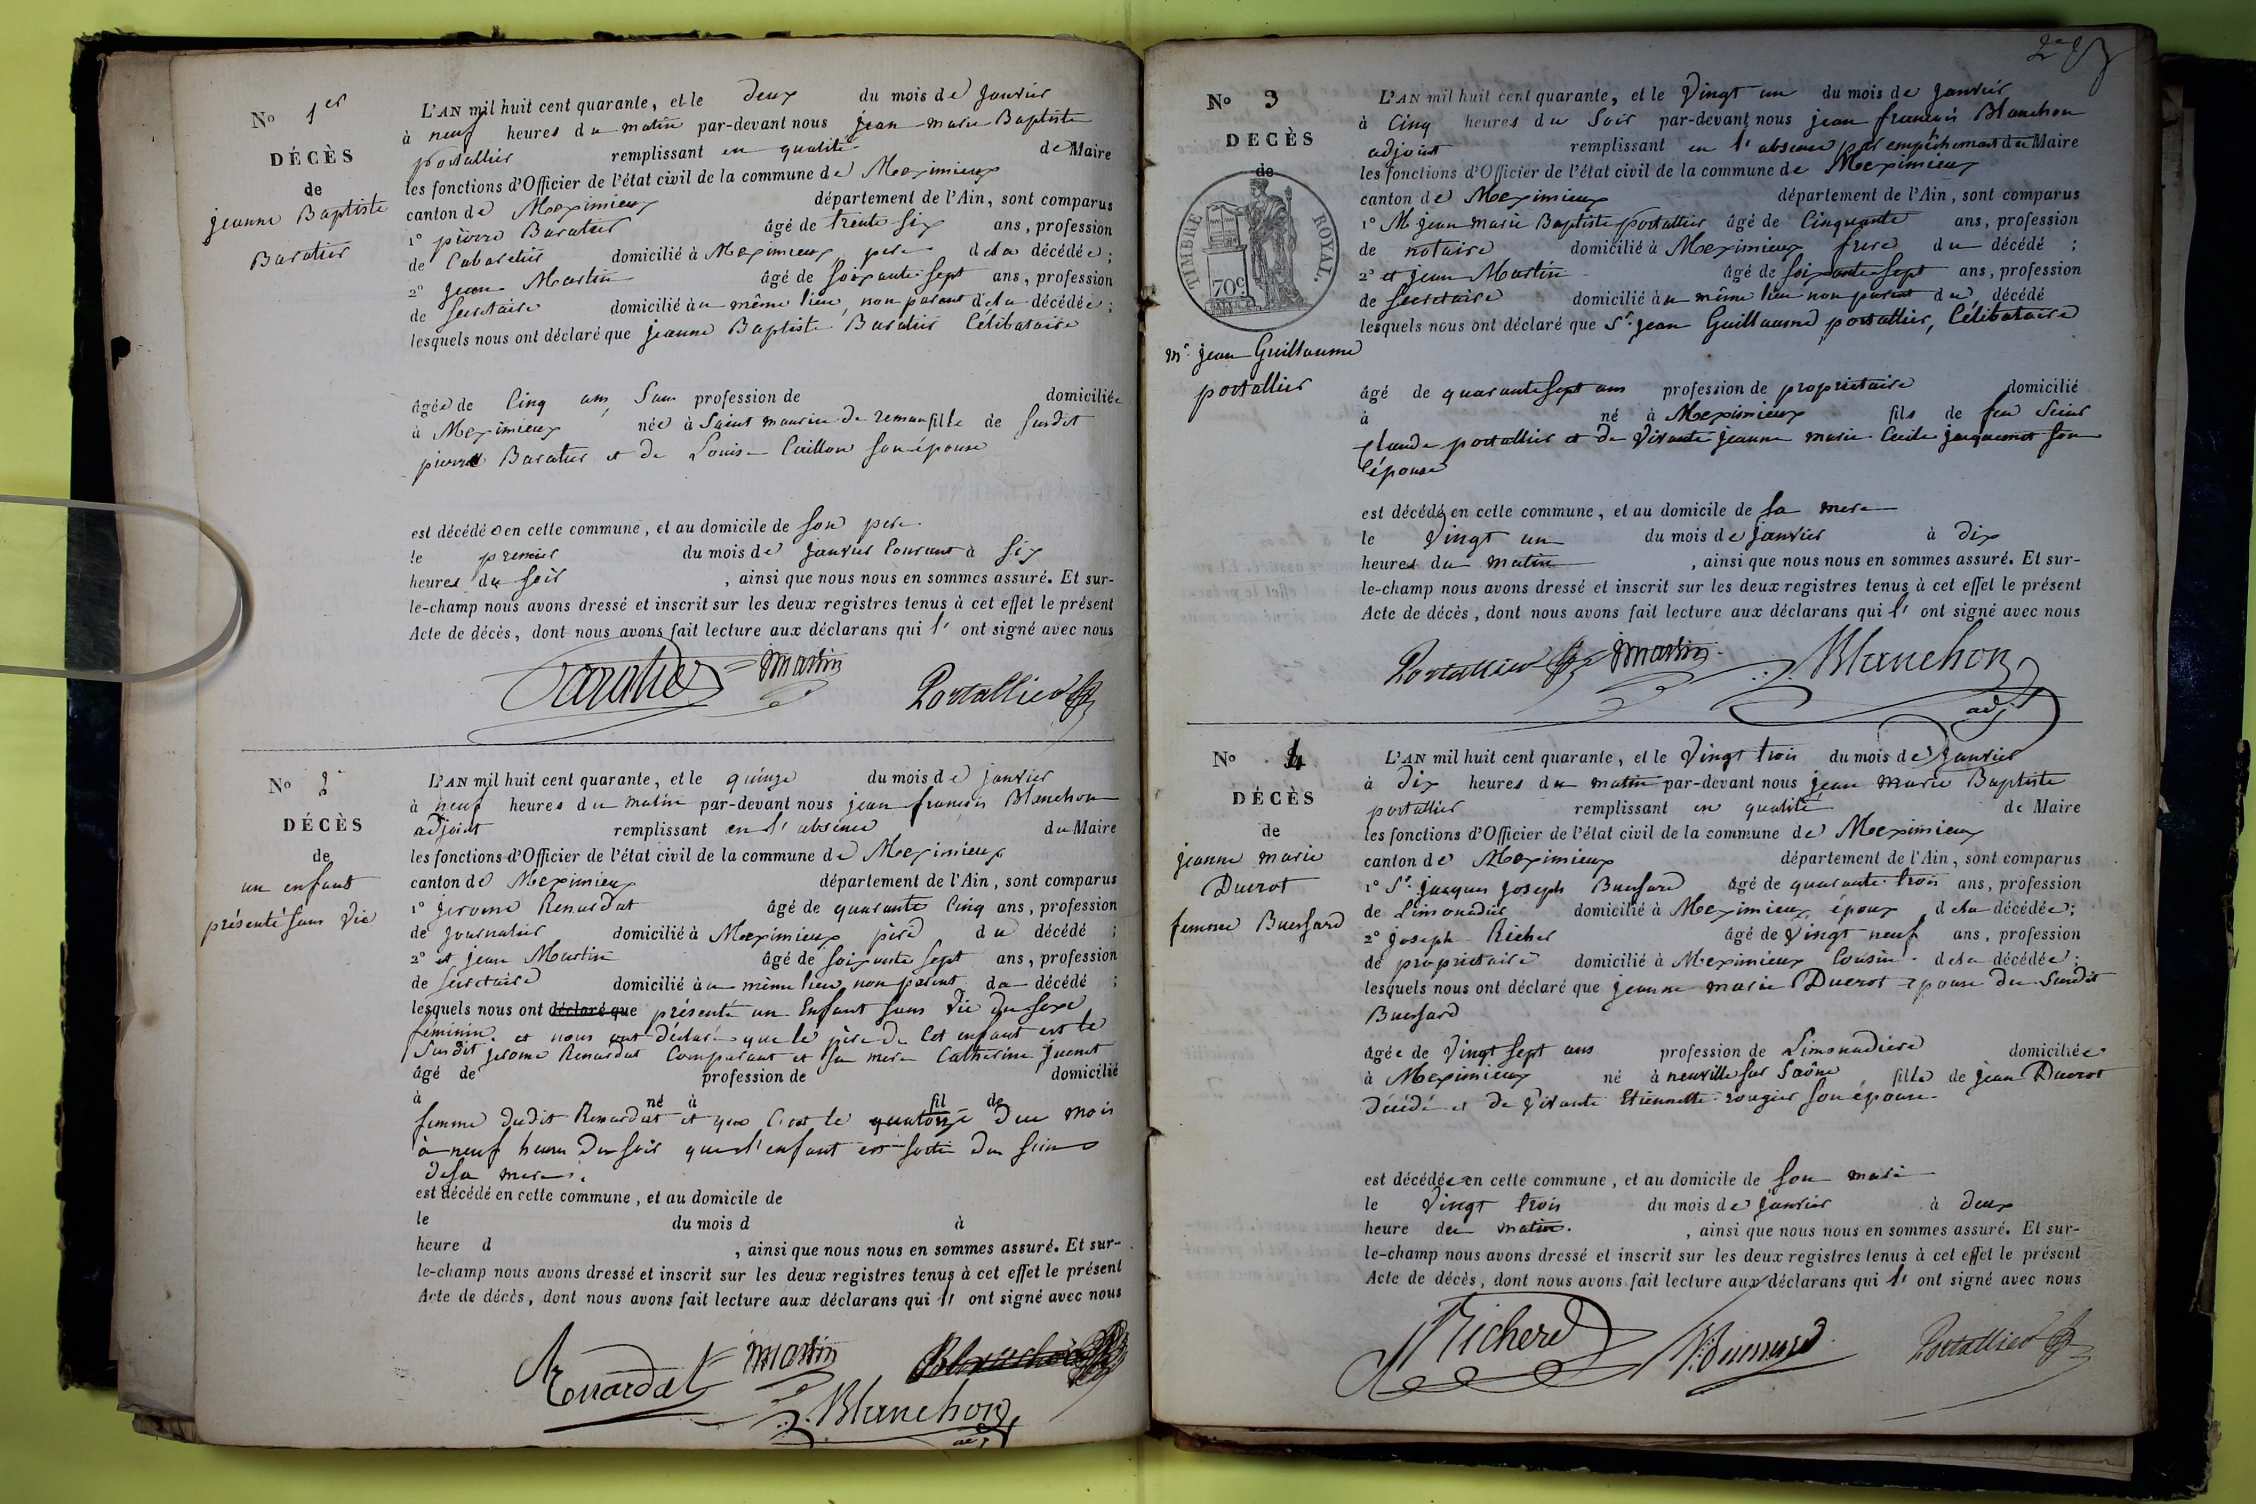 No 1er
DÉCÈS
de
jeanne Baptiste
Baratier
L'AN mil huit cent quarante, et le deux du mois de janvier
à neuf heures du matin par-devant nous jean marie Baptiste
portallier remplissant en qualité de Maire
les fonctions d'Officier de l'état civil de la commune de Meximieux
canton de Meximieux département de l'Ain, sont comparus
1° pierre Baratier âgé de trente six ans, profession
de Cabaretier domicilié à Meximieux père de la décédée ;
2° jean Martin âgé de soixante sept ans, profession
de secretaire domicilié au même lieu, non parent de la décédée ;
lesquels nous ont déclaré que jeanne Baptiste Baratier Célibataire
âgée de Cinq ans, Sans profession de domiciliée
à Meximieux née à Saint maurice de remans fille de susdit
pierre Baratier et de Louise Caillon son épouse
est décédée en cette commune, et au domicile de son père.
le premier du mois de janvier Courant à six
heures du soir , ainsi que nous nous en sommes assuré. Et sur-
le-champ nous avons dressé et inscrit sur les deux registres tenus à cet effet le présent
Acte de décès, dont nous avons fait lecture aux déclarans qui l' ont signé avec nous
Baratier martin
Portallier
No 2
DÉCÈS
de
un enfant
présenté sans vie
L'AN mil huit cent quarante, et le quinze du mois de janvier
à neuf heures du matin par-devant nous jean françois Blanchon
adjoint remplissant en l'absence du Maire
les fonctions d'Officier de l'état civil de la commune de Meximieux
canton de Meximieux département de l'Ain, sont comparus
1° jerome Renardat âgé de quarante Cinq ans, profession
de journalier domicilié à Meximieux père du décédé ;
2° et jean Martin âgé de soixante sept ans, profession
de secretaire domicilié au même lieu, non parent du décédé ;
lesquels nous ont déclaré que présenté un Enfant sans vie du sexe
féminin. et nous ont déclaré que le père de Cet enfant est le
susdit jerome Renardat Comparant et sa mère Catherine
âgé de profession de domicilié
à né à fil de
femme dudit Renardat et que C'est le quatorze du mois
à neuf heures du soir que l'enfant est sortie du sein
de sa mère.
est décédé en cette commune, et au domicile de
le du mois d à
heure d , ainsi que nous nous en sommes assuré. Et sur-
le-champ nous avons dressé et inscrit sur les deux registres tenus à cet effet le présent
Acte de décès, dont nous avons fait lecture aux déclarans qui l' ont signé avec nous
Renardat martin Blanchon
Blanchon
adj
No 3
DECÈS
de
TIMBRE ROYAL.
70c
Mr jean Guillaume
portallier
L'AN mil huit cent quarante, et le vingt un du mois de janvier
à Cinq heures du Soir par-devant nous jean françois Blanchon
adjoint remplissant en l'absence par empêchement du Maire
les fonctions d'Officier de l'état civil de la commune de Meximieux
canton de Meximieux département de l'Ain, sont comparus
1° M jean marie Baptiste portallier âgé de Cinquante ans, profession
de notaire domicilié à Meximieux frere du décédé ;
2° et jean Martin âgé de soixante sept ans, profession
de secretaire domicilié au même lieu non parent du décédé
lesquels nous ont déclaré que Sr. jean Guillaume portallier, Célibataire
âgé de quarante sept ans profession de proprietaire domicilié
à né à Meximieux fils de feu Sieur
Claude portallier et de vivante jeanne marie Cecile jacquemet son
épouse
est décédé en cette commune, et au domicile de sa mère
le vingt un du mois de janvier à dix
heures du matin , ainsi que nous nous en sommes assuré. Et sur-
le-champ nous avons dressé et inscrit sur les deux registres tenus à cet effet le présent
Acte de décès, dont nous avons fait lecture aux déclarans qui l' ont signé avec nous
Portallier martin Blanchon
adj
No 4
DÉCÈS
de
jeanne marie
Ducrot
femme Buessard
L'AN mil huit cent quarante, et le vingt trois du mois de janvier
à dix heures du matin par-devant nous jean marie Baptiste
portallier remplissant en qualité de Maire
les fonctions d'Officier de l'état civil de la commune de Meximieux
canton de Meximieux département de l'Ain, sont comparus
1° Sr. jacques joseph Buessard âgé de quarante trois ans, profession
de Limonadier domicilié à Meximieux, époux de la décédée ;
2° joseph Richer âgé de vingt neuf ans, profession
de proprietaire domicilié à Meximieux Cousin de la décédée ;
lesquels nous ont déclaré que jeanne marie Ducrot epouse du susdit
Buessard
âgée de vingt sept ans profession de Limonadiere domiciliée
à Meximieux né à neuville sur Saône fille de jean Ducrot
décédé et de vivante Etiennette rougier son épouse.
est décédée en cette commune, et au domicile de son mari
le vingt trois du mois de janvier à deux
heure du matin. , ainsi que nous nous en sommes assuré. Et sur-
le-champ nous avons dressé et inscrit sur les deux registres tenus à cet effet le présent
Acte de décès, dont nous avons fait lecture aux déclarans qui l' ont signé avec nous
Portallier